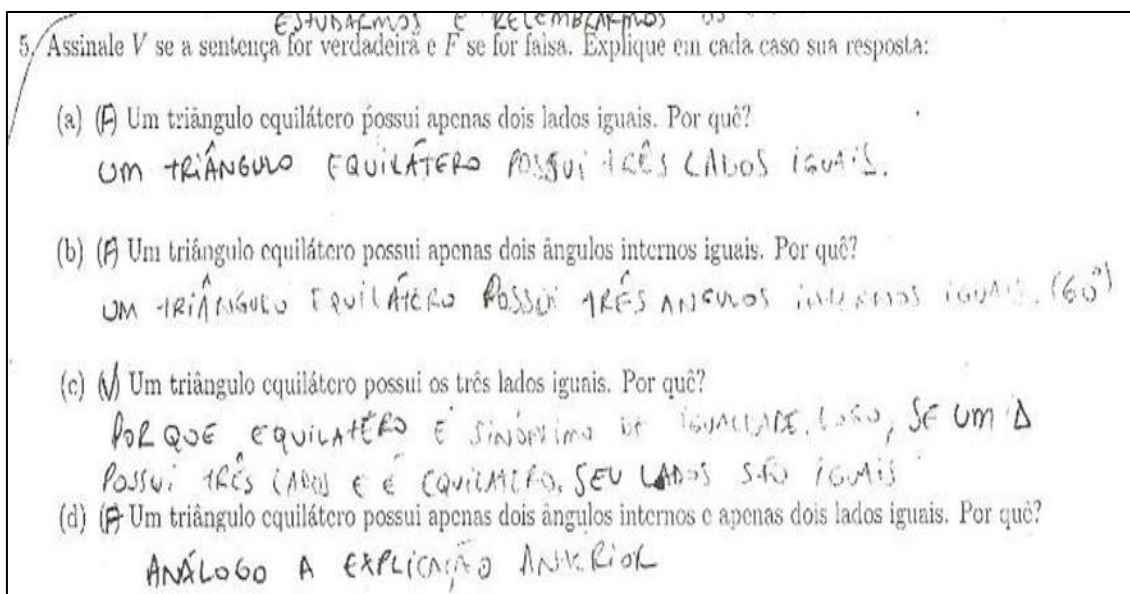 ESTUDARMOS E RELEMBRARMOS OS
5. Assinale V se a sentença for verdadeira e F se for falsa. Explique em cada caso sua resposta:
(a) (F) Um triângulo equilátero possui apenas dois lados iguais. Por quê?
UM TRIÂNGULO EQUILÁTERO POSSUI TRÊS LADOS IGUAIS.
(b) (F) Um triângulo equilátero possui apenas dois ângulos internos iguais. Por quê?
UM TRIÂNGULO EQUILÁTERO POSSUI TRÊS ANGULOS INTERNOS IGUAIS. (60°)
(c) (V) Um triângulo equilátero possui os três lados iguais. Por quê?
POR QUE EQUILATÉRO É SINÔNIMO DE IGUALDADE. LOGO, SE UM Δ
POSSUI TRÊS LADOS E É EQUILATERO, SEU LADOS SÃO IGUAIS
(d) (F) Um triângulo equilátero possui apenas dois ângulos internos e apenas dois lados iguais. Por quê?
ANÁLOGO A EXPLICAÇÃO ANTERIOR